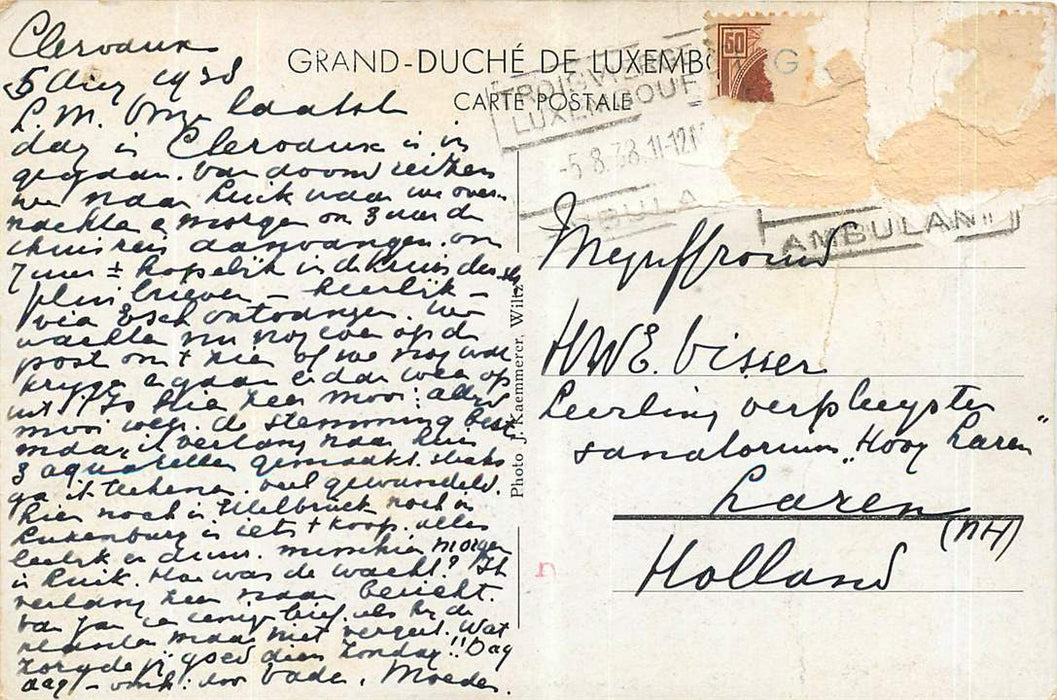 Clervaux
5 Aug 1938
L. M. Onze laatste
dag in Clervaux is in
gegaan. Van avond reizen
we naar Luik waar we over
nachten & morgen om 3 uur de
thuisreis aanvangen. om
7 uur ± hopelijk in de
brieven – heerlijk –
via Esch ontvangen. We
wachten nu nog even op de
post om t hier of we nog wat
krijgen & gaan er dan weer op
uit! Is hier zeer mooi: alles
mooi weer. de stemming best
maar ik verlang naar huis
3 aquarellen gemaakt. straks
ga ik tekenen. veel gewandeld.
hier noch in Ettelbruck noch in
Luxemburg is iets te koop. alles
leelijk en duur. misschien morgen
in Luik. Hoe was de wacht? Ik
verlang zeer naar bericht.
van Jan en eenige brief. als hij de
planten maar niet vergeet. Wat
zorgde jij goed dien Zondag!! Dag
dag – ook voor Vader, Moeder.
GRAND-DUCHÉ DE LUXEMBOURG
CARTE POSTALE
TROISVIERGES
LUXEMBOURG
-5.8.38.11-12
AMBULANT
60
Photo J. Kaemmerer, Wiltz
Mejuffrouw
H W E. Visser
Leerling verpleegster
sanatorium "Hoog Laren"
Laren
(NH)
Holland